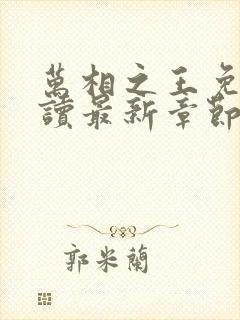 萬相之王免
讀最新章節
郭米蘭